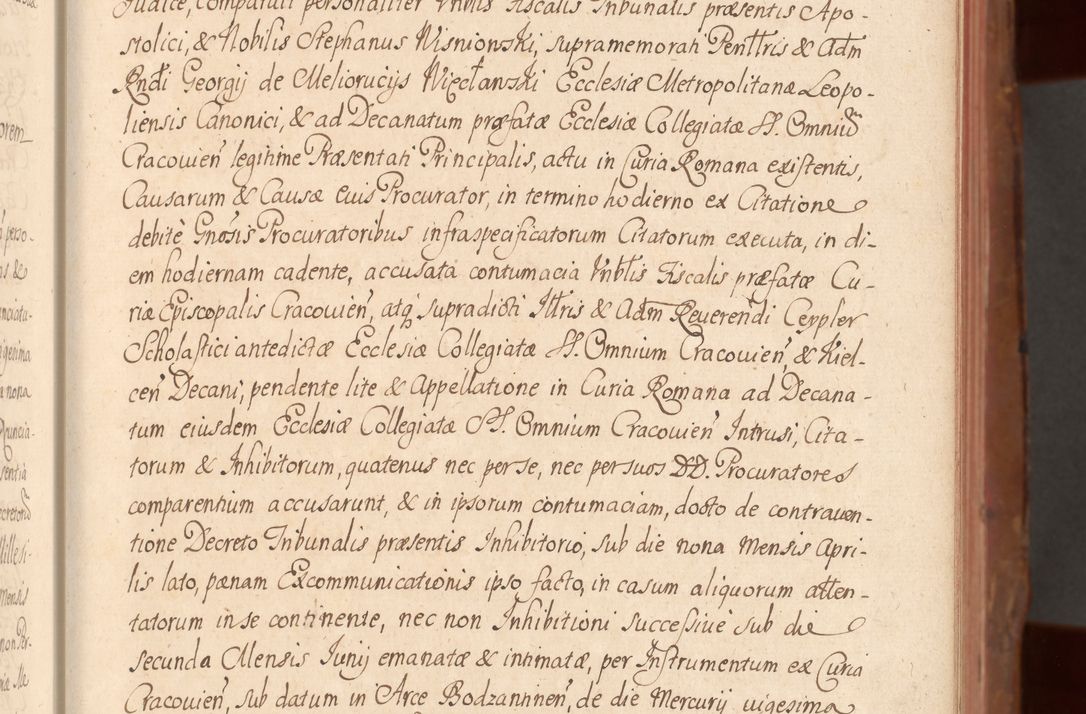 Judice, comparuit personaliter Vnblis Fiscalis Tribunalis præsentis Apo-
stolici, & Nobilis Stephanus Wisniowski, supramemorati Penltris & Adm
Rndi Georgij de Meliorucijs Więcławski Ecclesiæ Metropolitanæ Leopo-
liensis Canonici, & ad Decanatum præfatæ Ecclesiæ Collegiatæ SS. Omniũ
Cracouien̄ legitime Præsentati Principalis, actu in Curia Romana existentis,
Causarum & Causæ eius Procurator, in termino hodierno ex Citatione
debitè Gnosis Procuratoribus infraspecificatorum Citatorum executa, in di-
em hodiernam cadente, accusata contumacia Vnblis Fiscalis præfatæ Cu-
riæ Episcopalis Cracouien̄, atq supradicti Illris & Adm Reuerendi Ceypler
Scholastici antedictæ Ecclesiæ Collegiatæ SS. Omnium Cracouien̄, & Kiel-
cen̄ Decani, pendente lite & Appellatione in Curia Romana ad Decana-
tum eiusdem Ecclesiæ Collegiatæ SS. Omnium Cracouien̄ Intrusi, Cita-
torum & Inhibitorum, quatenus nec per se, nec per suos DD. Procuratores
comparentium accusarunt, & in ipsorum contumaciam, docto de contrauen-
tione Decreto Tribunalis præsentis Inhibitorio, sub die nona Mensis Apri-
lis lato, pænam Excommunicationis ipso facto, in casum aliquorum atten-
tatorum in se continente, nec non Inhibitioni successiuè sub die
secunda Mensis Junij emanatæ & intimatæ, per Instrumentum ex Curia
Cracouien̄, sub datum in Arce Bodzantinen̄, de die Mercurij uigesima